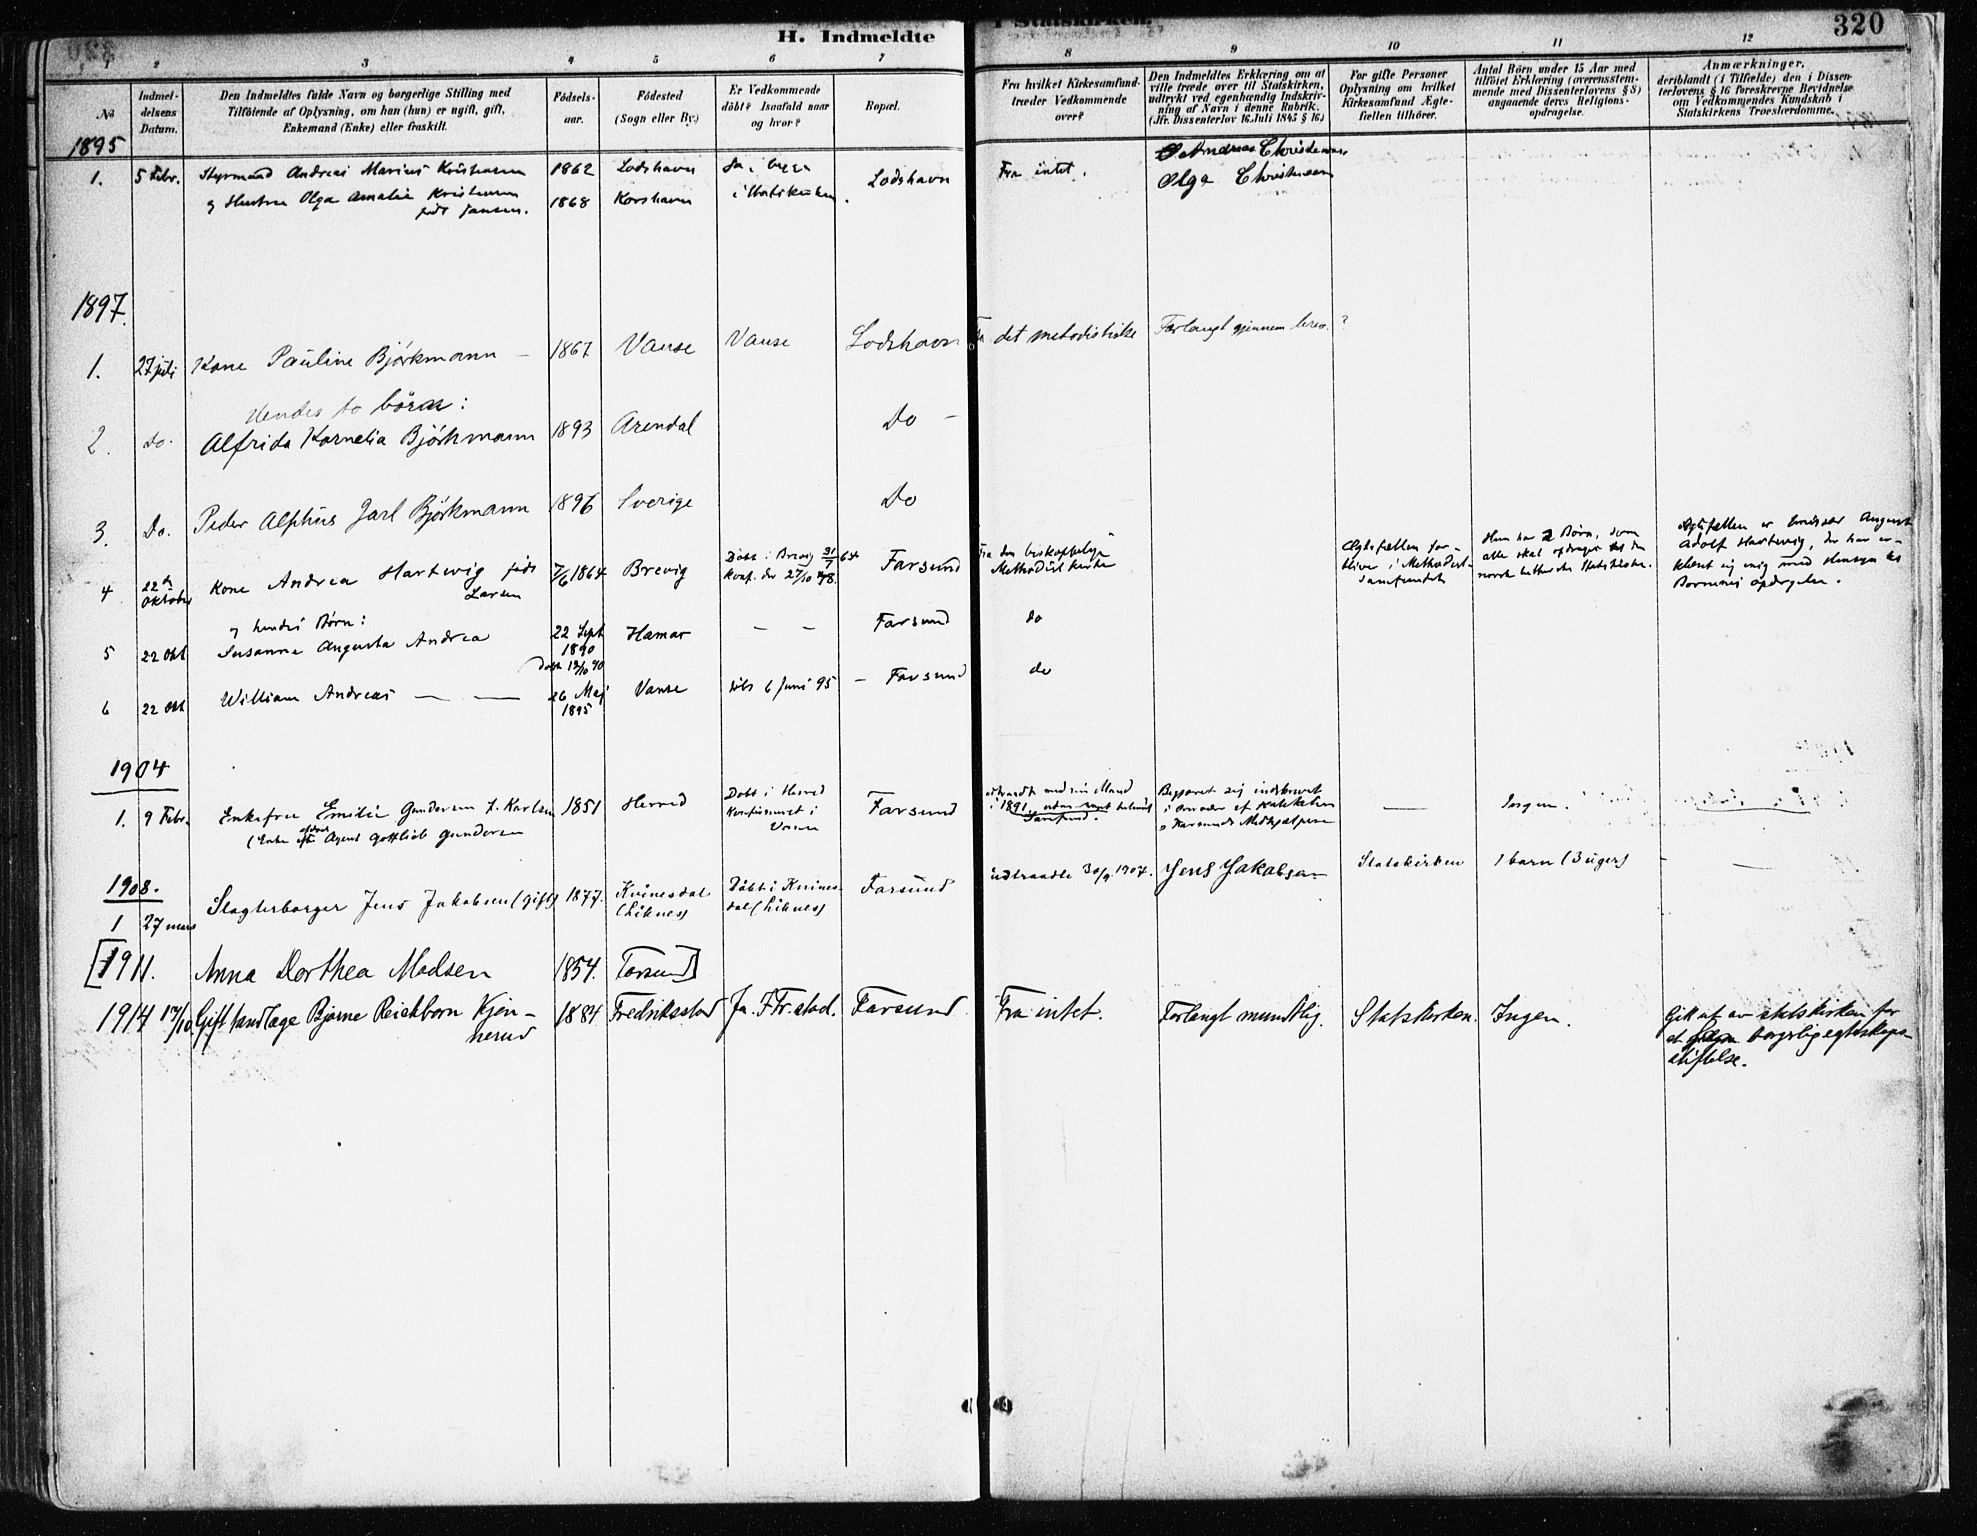 H. Indmeldte
i Statskirken.
320
1 2 3 4 5 6 7 8 9 10 11 12
No
Indmel-
delsens
Datum.
Den Indmeldtes fulde Navn og borgerlige Stilling med
Tilföiende af Oplysning, om han (hun) er ugift, gift,
Enkemand (Enke) eller fraskilt.
Födsels-
aar.
Födested
(Sogn eller By.)
Er Vedkommende
döbt? Isaafald naar
og hvor?
Bopæl.
Fra hvilket Kirkesamfund-
træder Vedkommende
over?
Den Indmeldtes Erklæring om at
ville træde over til Statskirken,
udtrykt ved egenhændig Indskriv-
ning af Navn i denne Rubrik.
(Jfr. Dissenterlov 16. Juli 1845 § 16.)
For gifte Personer
Oplysning om hvilket
Kirkesamfund Ægte-
fællen tilhörer.
Antal Börn under 15 Aar med
tilföiet Erklæring (overensstem-
mende med Dissenterlovens § 8)
angaaende deres Religions-
opdragelse.
Anmærkninger,
deriblandt (i Tilfælde) den i Dissen-
terlovens § 16 foreskrevne Bevidnelse
om Vedkommendes Kundskab i
Statskirkens Troeslærdomme.
1895
1. 5 Febr. Styrmand Andreas Marius Kristensen 1862 Lodshavn Ja, begge Lodshavn Fra intet. Andreas Christensen
og Hustru Olga Amalie Kristensen 1868 Korshavn i Statskirken. Olga Christensen
født Jansen.
1897.
1. 27 juli Kone Pauline Björkmann 1867 Vanse Vanse Lodshavn Fra det metodistiske Forlangt gjennem brev.?
Hendes to börn:
2. do. Alfrida Kornelia Björkmann 1893 Arendal Do
3. Do. Peder Alphus Jarl Björkmann 1896 Sverige Do
4 22de Oktober Kone Andrea Hartevig født Larsen 7/6 1864 Brevig Döbt i Brevig 31/7 64 Konf. der 27/10 78. Farsund Fra den biskoppelige Methodist kirke
Ægtefællen for-
bliver i Methodist-
samfundet
Hun har 2 Børn, som
alle skal opdrages i den
norske lutherske Statskirke.
Ægtefællen er August
Adolf Hartevig, der har er-
klært sig enig med Hensyn til
Børnenes opdragelse.
og hendes Børn:
5 22 Okt Susanna Augusta Andrea 22 Sept 1890 Hamar — — Farsund do
Døbt 12/10 90
6 22 Okt William Andreas — — 26 Maj 1895 Vanse döbt 6 Juni 95 — Farsund do
1904
1. 9 Febr. Enkefru Emilie Gundersen f. Karlsen 1851 Herred Döbt i Herred Konfirmeret i Vanse Farsund
(Enke efter Agent Gottlieb Gundersen
udtraadt med sin Mand
i 1891 uden nyt bestemt
Samfund.
Begjæret sig indskrevet
i nærvær af Kateketen
— Ingen. —
1908.
1 27 mars Slagterborger Jens Jakobsen (gift) 1877. Kvinesdal (Liknes) Döbt i Kvines-dal (Liknes) Farsund udtraadte 30/9 1907. Jens Jakobsen Statskirken 1 barn (3 uger) —
[1911. Anna Dorthea Madsen 1854. Farsund]
1914 17/10 Gift tandlæge Bjarne Reichborn Kjen-
nerud 1884 Fredriksstad Ja. Fr.stad. Farsund. Fra intet. Forlangt mundtlig. Statskirken. Ingen.
Gik ut av statskirken for
at borgerlig egteskaps-
stiftelse.